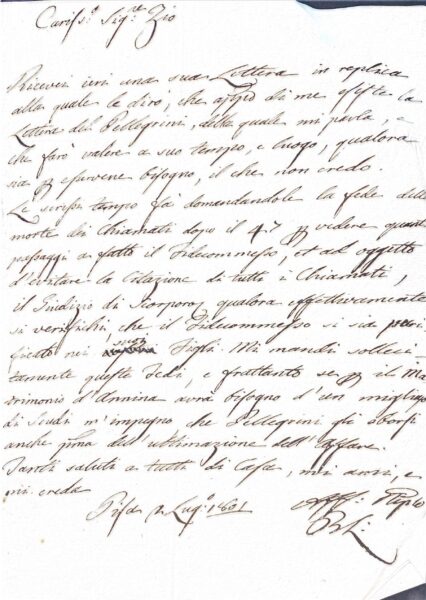 Cariss.º Sig.re Zio
Ricevei ieri una sua Lettera in replica
alla quale le dirò, che appo di me esiste la
Lettera del Pellegrini, della quale mi parla, e
che farò valere a suo tempo, e luogo, qualora
sia p esservene bisogno, il che non credo.
Le scrissi tempo fà domandandole la fede della
morte dei Chiamati dopo il 47 p vedere quanti
passaggi a fatto il Fidecommesso, et ad oggetto
d'evitare la Citazione di tutti i Chiamati,
il Giudizio di Scorporo, qualora effettivamente
si verifichi, che il Fidecommesso si sia puri
ficato nei suoi Figli. Mi mandi solleci
tamente queste Fedi, e frattanto se p il Ma
trimonio d'Annina avrà bisogno d'un migliajo
di Scudi m'impegno, che Pellegrini gli sborsi
anche prima dell'ultimazione dell'Affare.
Tanti saluti a tutti di Casa, mi ami, e
mi creda
Pisa Lug.º 1801 Aff.